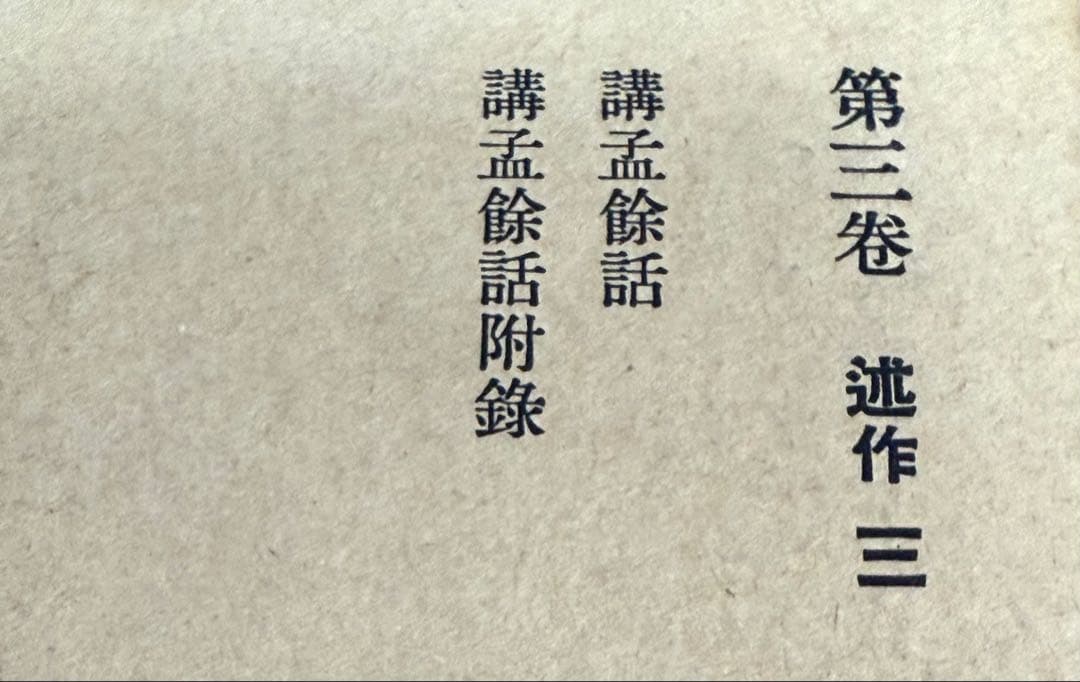 第三卷 述作 三
講孟餘話
講孟餘話附錄